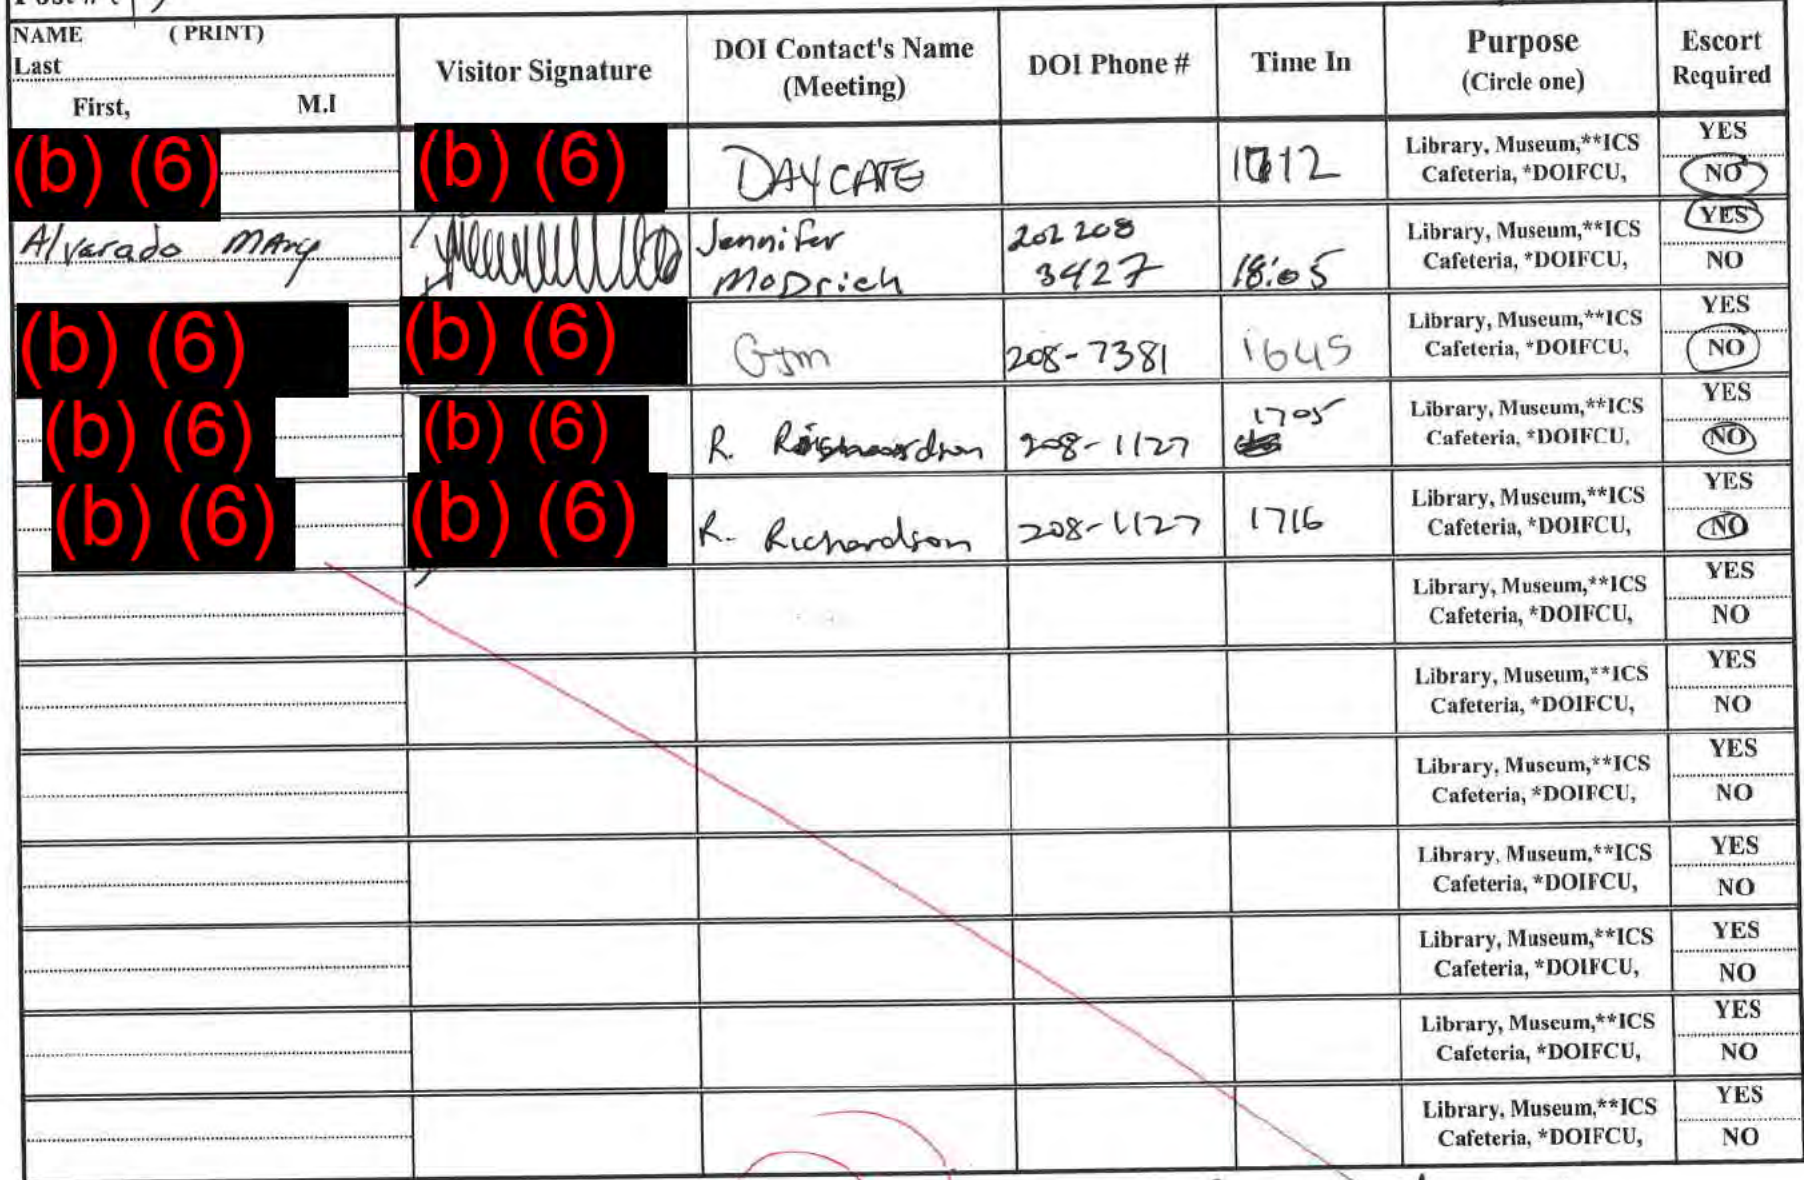 Post #
NAME (PRINT)
Last
First, M.I
Visitor Signature
DOI Contact's Name
(Meeting)
DOI Phone #
Time In
Purpose
(Circle one)
Escort
Required
(b) (6) (b) (6) DAYCARE 1712 Library, Museum,**ICS YES
Cafeteria, *DOIFCU, NO
Alvarado Mary Jennifer 202 208 Library, Museum,**ICS YES
Modrich 3427 18:05 Cafeteria, *DOIFCU, NO
(b) (6) (b) (6) Gym 208-7381 1645 Library, Museum,**ICS YES
Cafeteria, *DOIFCU, NO
(b) (6) (b) (6) R. Richardson 208-1127 1705 Library, Museum,**ICS YES
Cafeteria, *DOIFCU, NO
(b) (6) (b) (6) R. Richardson 208-1127 1716 Library, Museum,**ICS YES
Cafeteria, *DOIFCU, NO
Library, Museum,**ICS YES
Cafeteria, *DOIFCU, NO
Library, Museum,**ICS YES
Cafeteria, *DOIFCU, NO
Library, Museum,**ICS YES
Cafeteria, *DOIFCU, NO
Library, Museum,**ICS YES
Cafeteria, *DOIFCU, NO
Library, Museum,**ICS YES
Cafeteria, *DOIFCU, NO
Library, Museum,**ICS YES
Cafeteria, *DOIFCU, NO
Library, Museum,**ICS YES
Cafeteria, *DOIFCU, NO